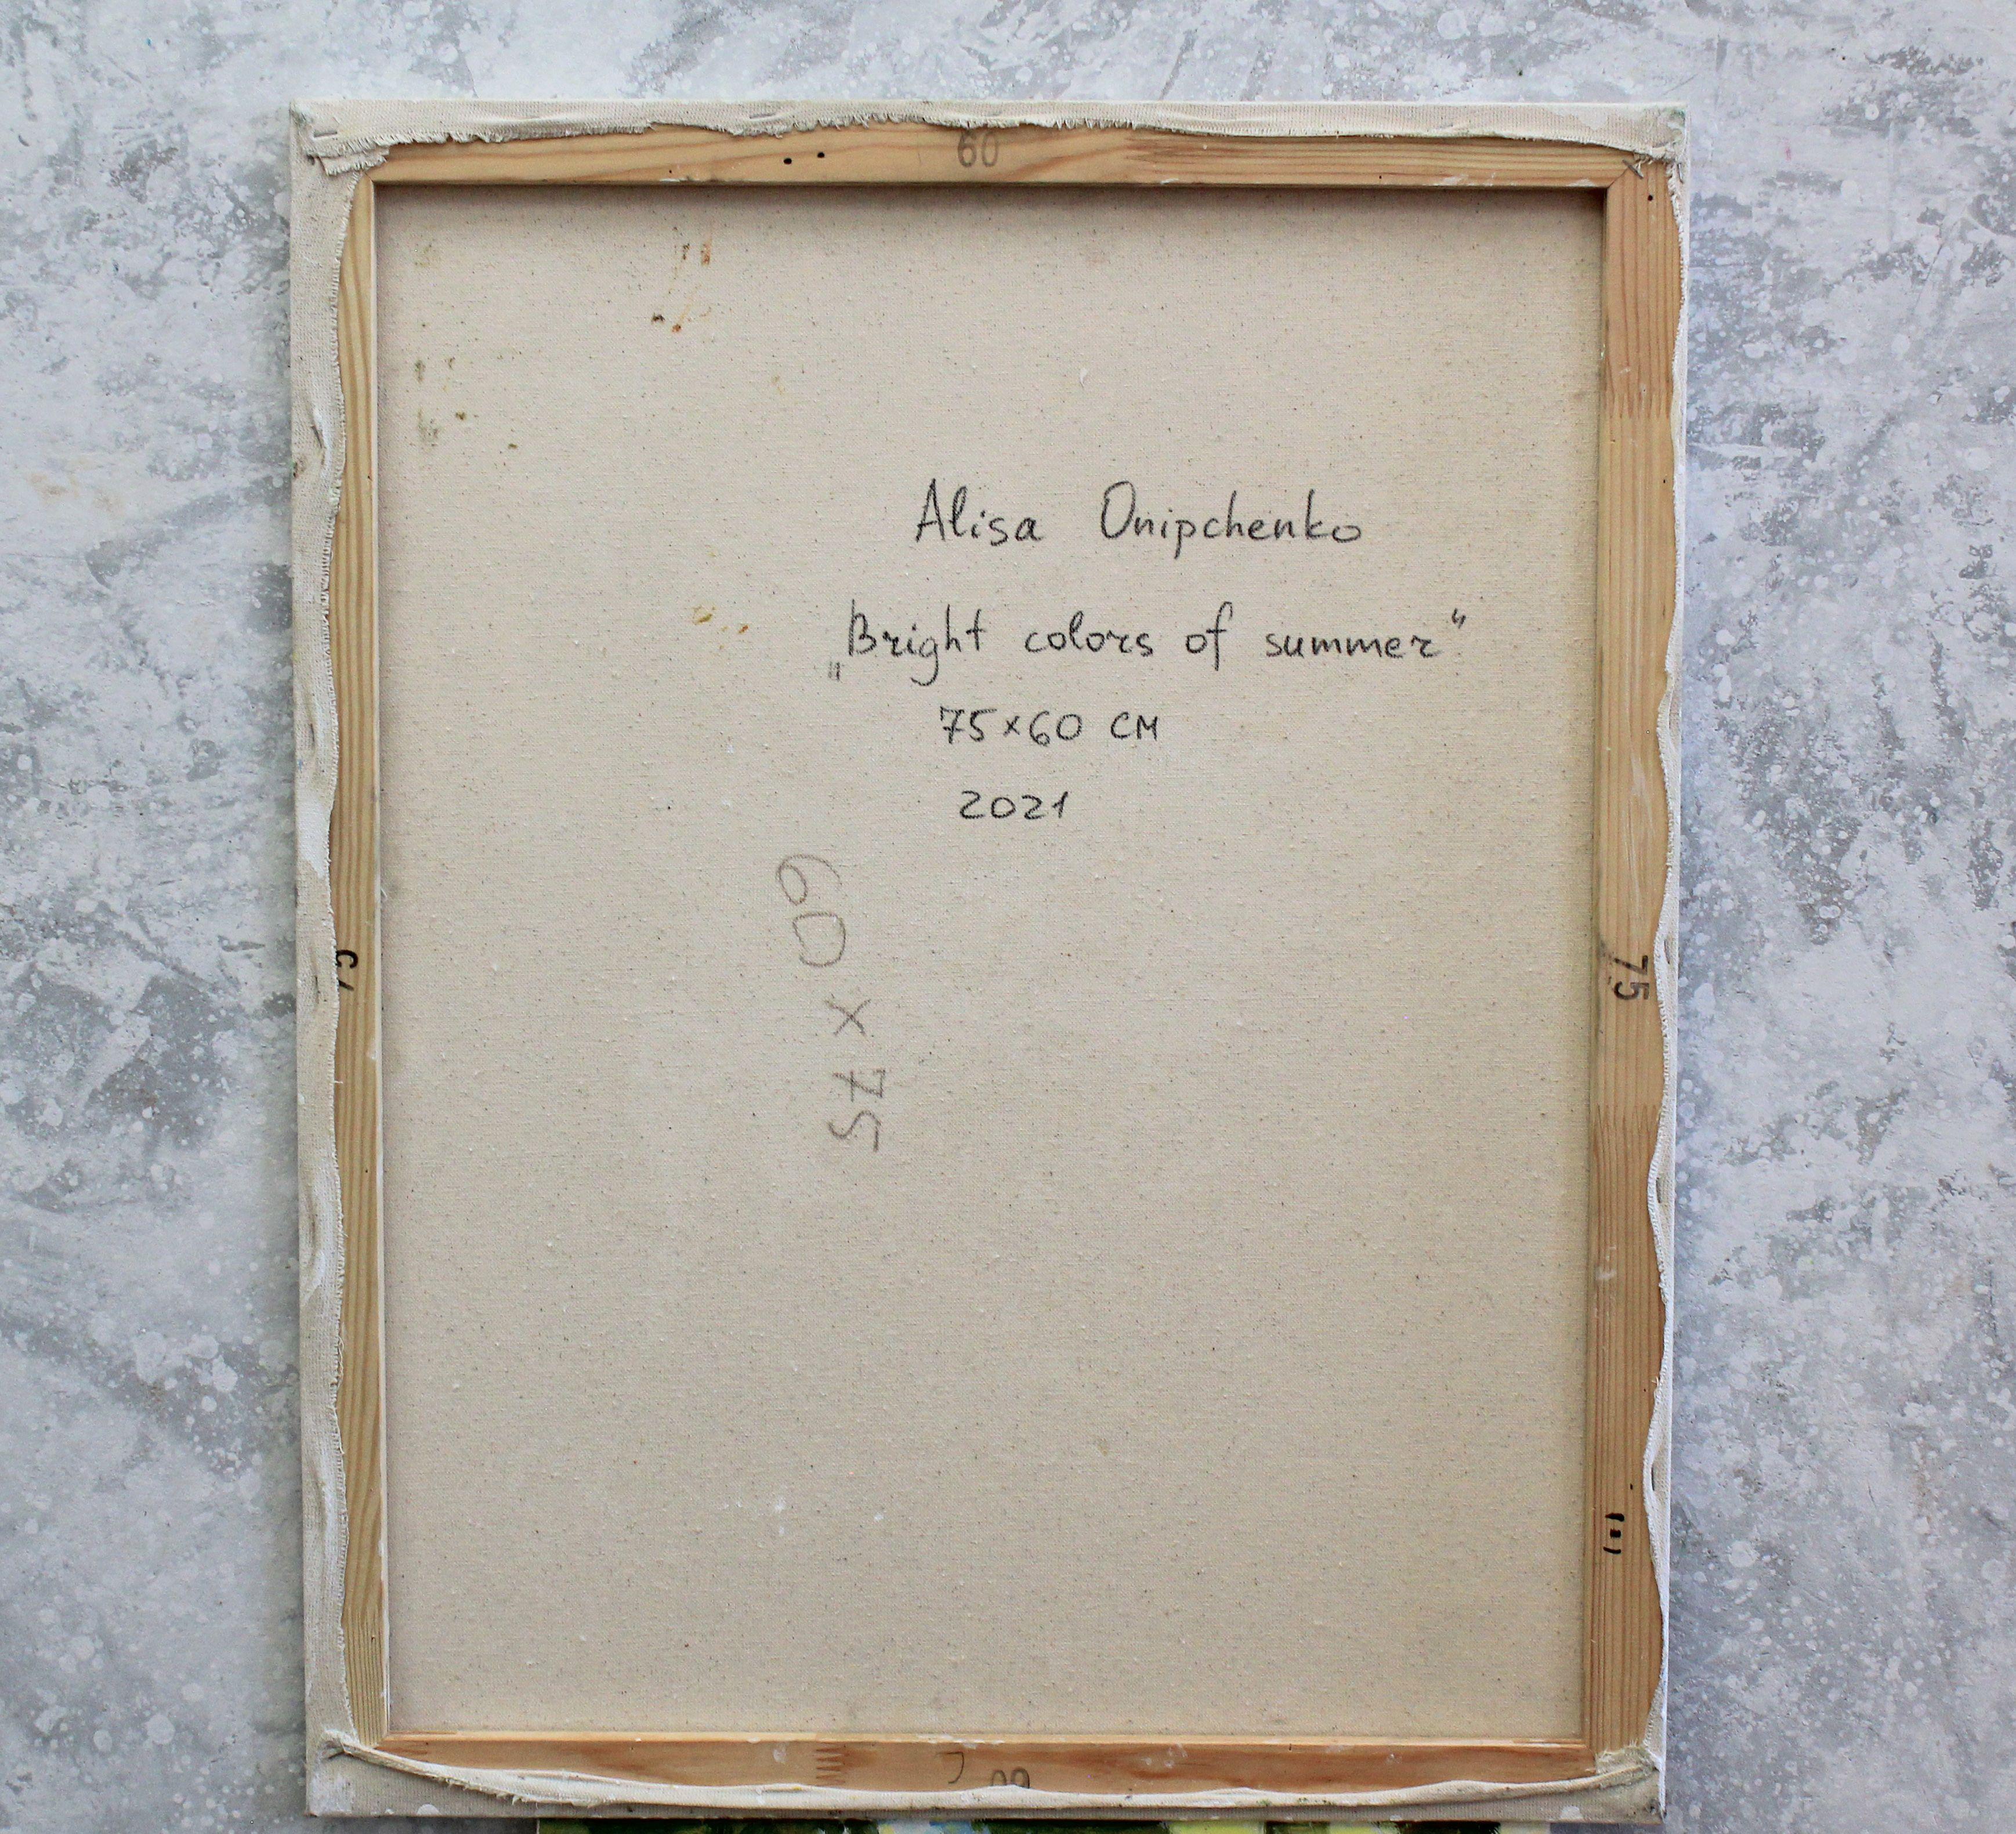 60
Alisa Onipchenko
„Bright colors of summer“
75×60 см
2021
60 × 75
75
60